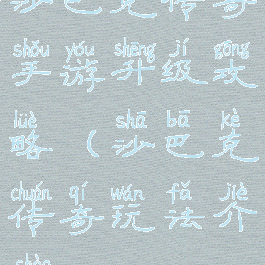 沙巴克传奇
shǒu yóu shēng jí gōng
手游升级攻
lüè shā bā kè
略（沙巴克
chuán qí wán fǎ jiè
传奇玩法介
shào